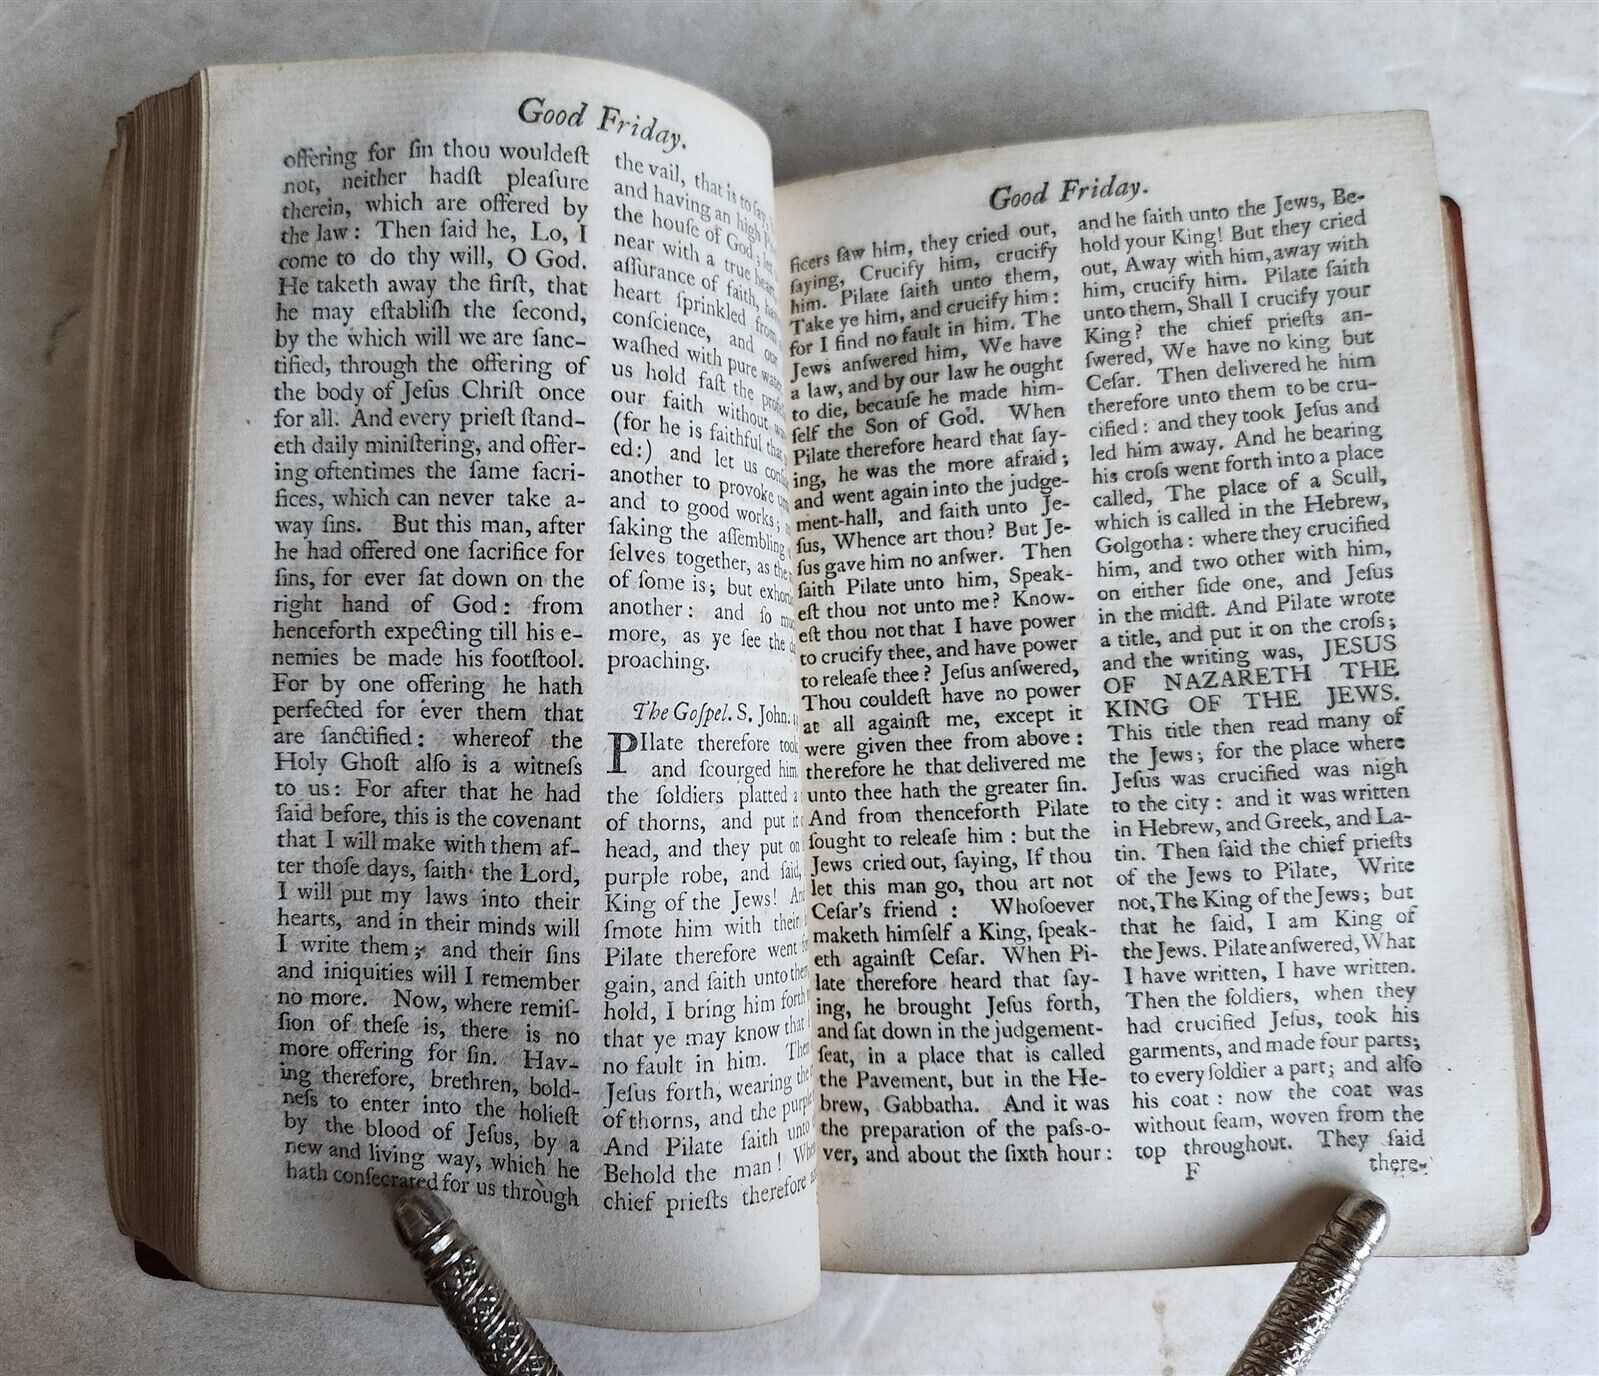 Good Friday.
offering for ſin thou wouldeſt
not, neither hadſt pleaſure
therein, which are offered by
the law: Then ſaid he, Lo, I
come to do thy will, O God.
He taketh away the firſt, that
he may eſtabliſh the ſecond,
by the which will we are ſanc-
tified, through the offering of
the body of Jeſus Chriſt once
for all. And every prieſt ſtand-
eth daily miniſtering, and offer-
ing oftentimes the ſame ſacri-
fices, which can never take a-
way ſins. But this man, after
he had offered one ſacrifice for
ſins, for ever ſat down on the
right hand of God: from
henceforth expecting till his e-
nemies be made his footſtool.
For by one offering he hath
perfected for ever them that
are ſanctified: whereof the
Holy Ghoſt alſo is a witneſs
to us: For after that he had
ſaid before, this is the covenant
that I will make with them af-
ter thoſe days, ſaith the Lord,
I will put my laws into their
hearts, and in their minds will
I write them; and their ſins
and iniquities will I remember
no more. Now, where remiſ-
ſion of theſe is, there is no
more offering for ſin. Hav-
ing therefore, brethren, bold-
neſs to enter into the holieſt
by the blood of Jeſus, by a
new and living way, which he
hath conſecrated for us through
the vail, that is to ſay,
and having an high
the houſe of God; let
near with a true heart,
aſſurance of faith,
heart ſprinkled from
conſcience, and our
waſhed with pure water
us hold faſt the
our faith without
(for he is faithful that
ed:) and let us
another to provoke
and to good works;
ſaking the aſſembling
ſelves together, as the
of ſome is; but exhort
another: and ſo much
more, as ye ſee the
proaching.
The Goſpel. S. John.
PIlate therefore took
and ſcourged him,
the ſoldiers platted a
of thorns, and put it
head, and they put on
purple robe, and ſaid,
King of the Jews! And
ſmote him with their
Pilate therefore went
gain, and ſaith unto them
hold, I bring him forth
that ye may know that I
no fault in him. Then
Jeſus forth, wearing the
of thorns, and the purple
And Pilate ſaith unto
Behold the man! When
chief prieſts therefore
Good Friday.
ficers ſaw him, they cried out,
ſaying, Crucify him, crucify
him. Pilate ſaith unto them,
Take ye him, and crucify him:
for I find no fault in him. The
Jews anſwered him, We have
a law, and by our law he ought
to die, becauſe he made him-
ſelf the Son of God. When
Pilate therefore heard that ſay-
ing, he was the more afraid;
and went again into the judge-
ment-hall, and ſaith unto Je-
ſus, Whence art thou? But Je-
ſus gave him no anſwer. Then
ſaith Pilate unto him, Speak-
eſt thou not unto me? Know-
eſt thou not that I have power
to crucify thee, and have power
to releaſe thee? Jeſus anſwered,
Thou couldeſt have no power
at all againſt me, except it
were given thee from above:
therefore he that delivered me
unto thee hath the greater ſin.
And from thenceforth Pilate
ſought to releaſe him: but the
Jews cried out, ſaying, If thou
let this man go, thou art not
Ceſar's friend: Whoſoever
maketh himſelf a King, ſpeak-
eth againſt Ceſar. When Pi-
late therefore heard that ſay-
ing, he brought Jeſus forth,
and ſat down in the judgement-
ſeat, in a place that is called
the Pavement, but in the He-
brew, Gabbatha. And it was
the preparation of the paſs-o-
ver, and about the ſixth hour:
and he ſaith unto the Jews, Be-
hold your King! But they cried
out, Away with him, away with
him, crucify him. Pilate ſaith
unto them, Shall I crucify your
King? the chief prieſts an-
ſwered, We have no king but
Ceſar. Then delivered he him
therefore unto them to be cru-
cified: and they took Jeſus and
led him away. And he bearing
his croſs went forth into a place
called, The place of a Scull,
which is called in the Hebrew,
Golgotha: where they crucified
him, and two other with him,
on either ſide one, and Jeſus
in the midſt. And Pilate wrote
a title, and put it on the croſs;
and the writing was, JESUS
OF NAZARETH THE
KING OF THE JEWS.
This title then read many of
the Jews; for the place where
Jeſus was crucified was nigh
to the city: and it was written
in Hebrew, and Greek, and La-
tin. Then ſaid the chief prieſts
of the Jews to Pilate, Write
not, The King of the Jews; but
that he ſaid, I am King of
the Jews. Pilate anſwered, What
I have written, I have written.
Then the ſoldiers, when they
had crucified Jeſus, took his
garments, and made four parts;
to every ſoldier a part; and alſo
his coat: now the coat was
without ſeam, woven from the
top throughout. They ſaid
F
there-